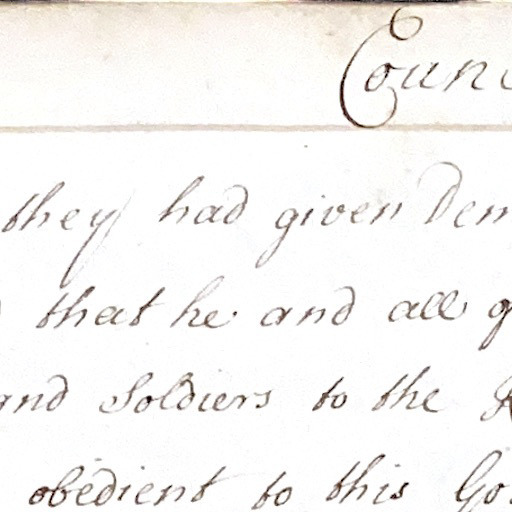 Coun
they had given Dem
that he and all g
and Soldiers to the
obedient to this Go